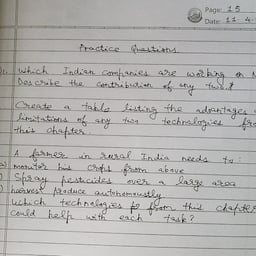 Page: 15
Date: 11 4.
Practice Questions
which Indian companies are working on
Describe the contribution of any two?
Create a table listing the advantages
limitations of any two technologies fro
this chapter.
A farmer in rural India needs to:
a) monitor his crops from above
) Spray pesticides over a large area
) harvest produce autonomously
which technologies from this chapter
could help with each task?